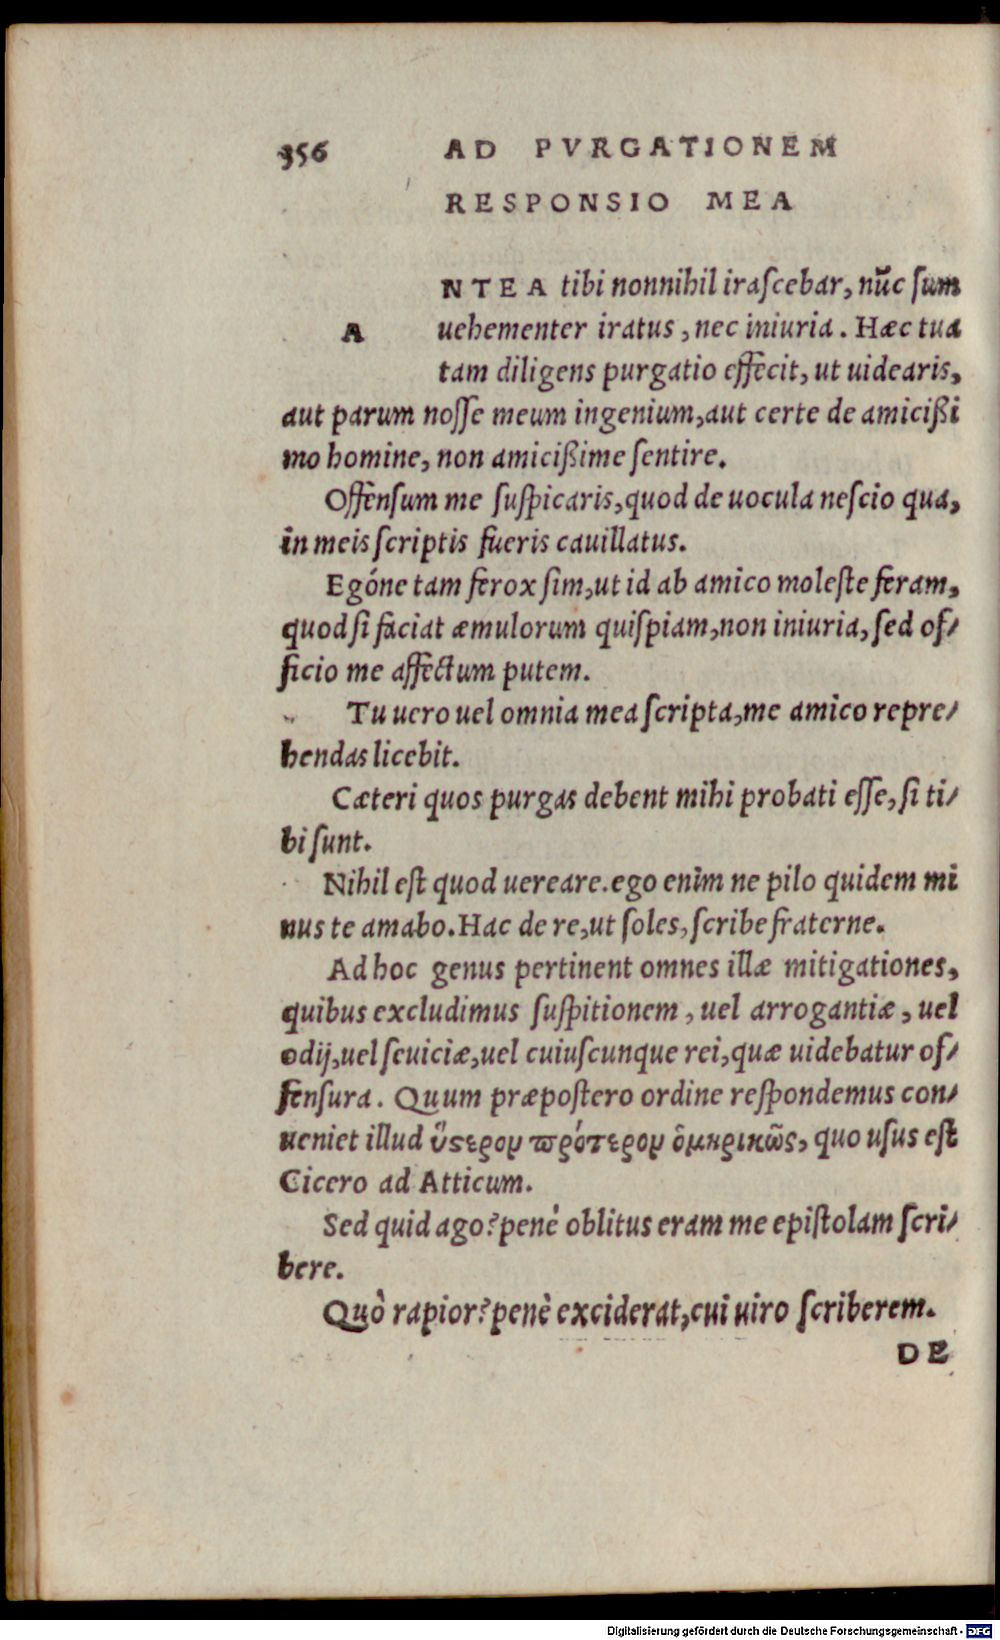 356 AD PVRGATIONEM
RESPONSIO MEA
ANTEA tibi nonnihil irascebar, nūc sum
uehementer iratus, nec iniuria. Hæc tua
tam diligens purgatio effecit, ut uidearis,
aut parum nosse meum ingenium, aut certe de amicißi
mo homine, non amicißime sentire.
Offensum me suspicaris, quod de uocula nescio qua,
in meis scriptis fueris cauillatus.
Egóne tam ferox sim, ut id ab amico moleste feram,
quod si faciat æmulorum quispiam, non iniuria, sed of/
ficio me affectum putem.
Tu uero uel omnia mea scripta, me amico repre/
hendas licebit.
Cæteri quos purgas debent mihi probati esse, si ti/
bi sunt.
Nihil est quod uereare. ego enim ne pilo quidem mi
nus te amabo. Hac de re, ut soles, scribe fraterne.
Ad hoc genus pertinent omnes illæ mitigationes,
quibus excludimus suspitionem, uel arrogantiæ, uel
odij, uel seuiciæ, uel cuiuscunque rei, quæ uidebatur of/
fensura. Quum præpostero ordine respondemus con/
ueniet illud ὕστερον πρότερον ὁμηρικῶς, quo usus est
Cicero ad Atticum.
Sed quid ago? penè oblitus eram me epistolam scri/
bere.
Quò rapior? penè exciderat, cui uiro scriberem.
DE
Digitalisierung gefördert durch die Deutsche Forschungsgemeinschaft - DFG